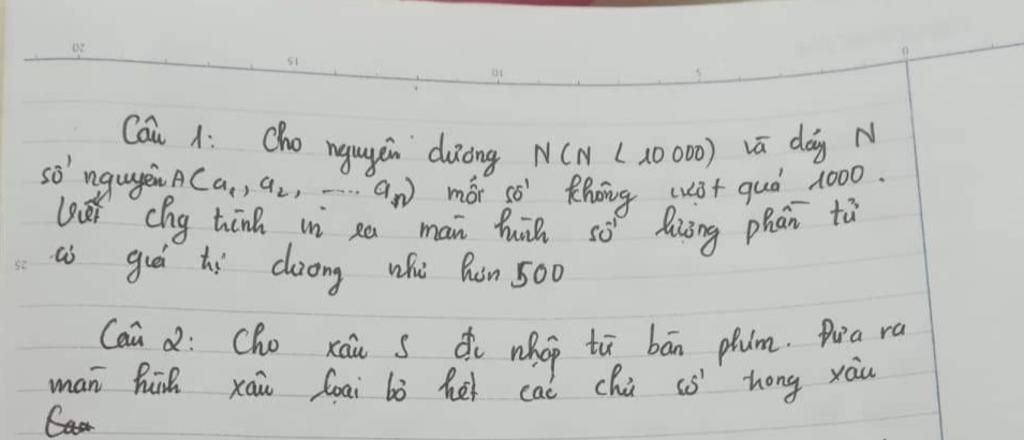 20 15 10 5 0
Câu 1: Cho nguyên dương N(N < 10000) và dãy N
số nguyên A(a1, a2, .... an) mỗi số không vượt quá 1000.
Viết chg trình in ra màn hình số lượng phần tử
25 có giá trị dương nhỏ hơn 500
Câu 2: Cho xâu S đc nhập từ bàn phím. Đưa ra
màn hình xâu loại bỏ hết các chữ số trong xâu